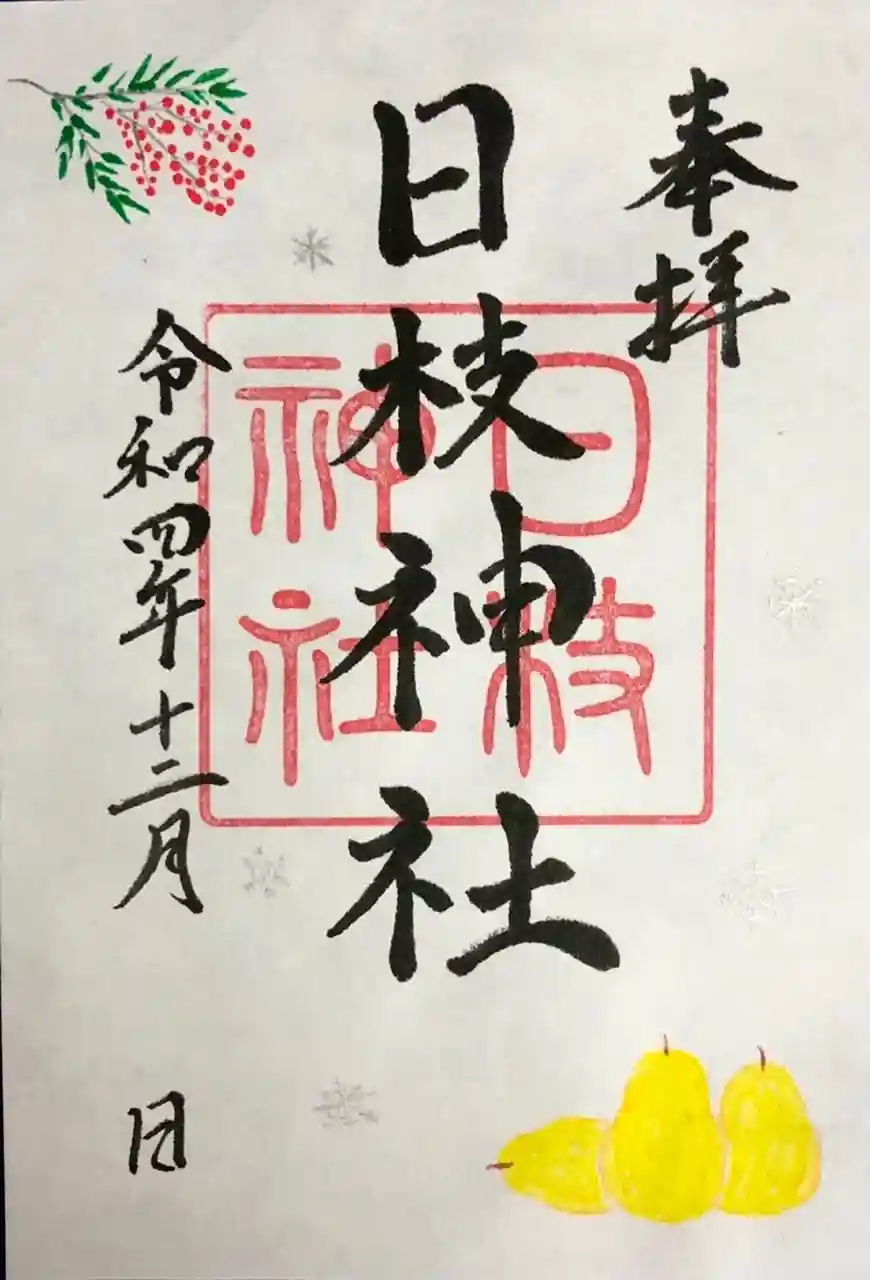 奉拝
日枝神社
日枝
神社
令和四年十二月 日